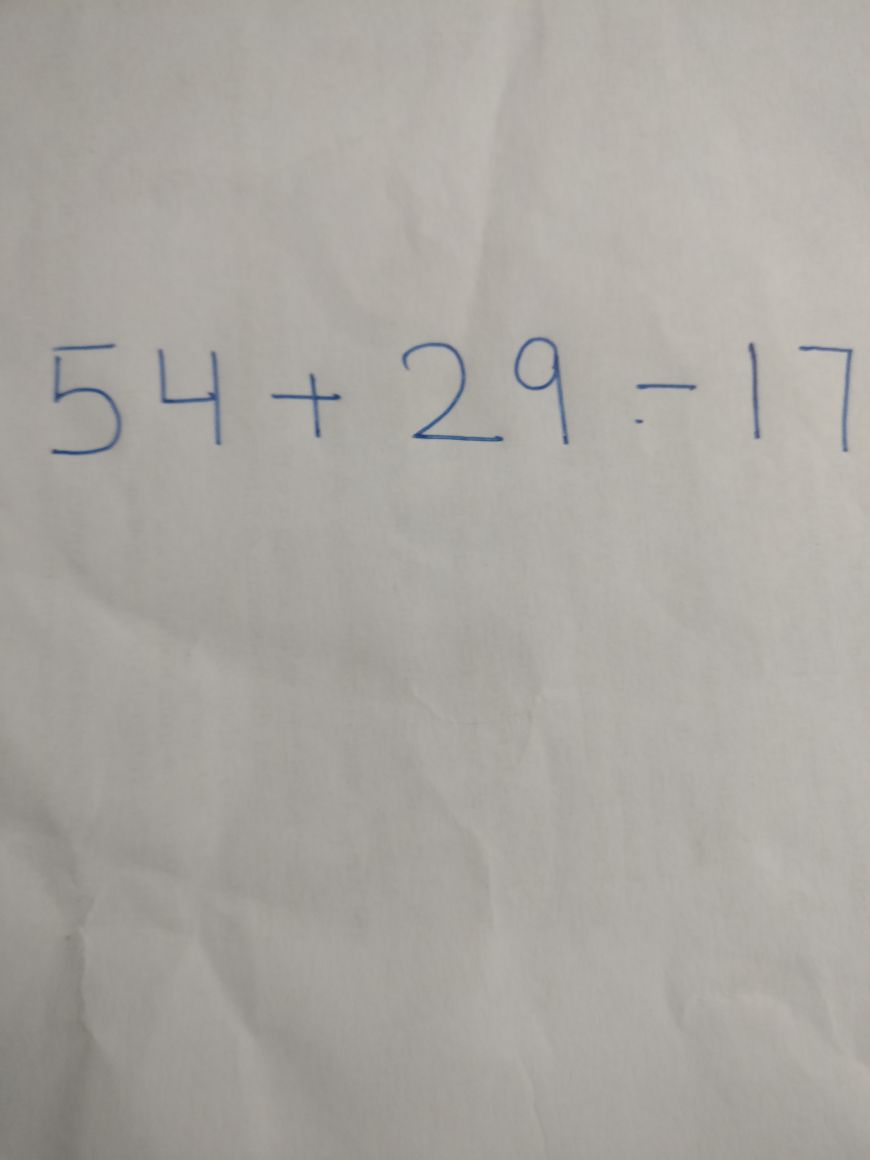 54 + 29 - 17